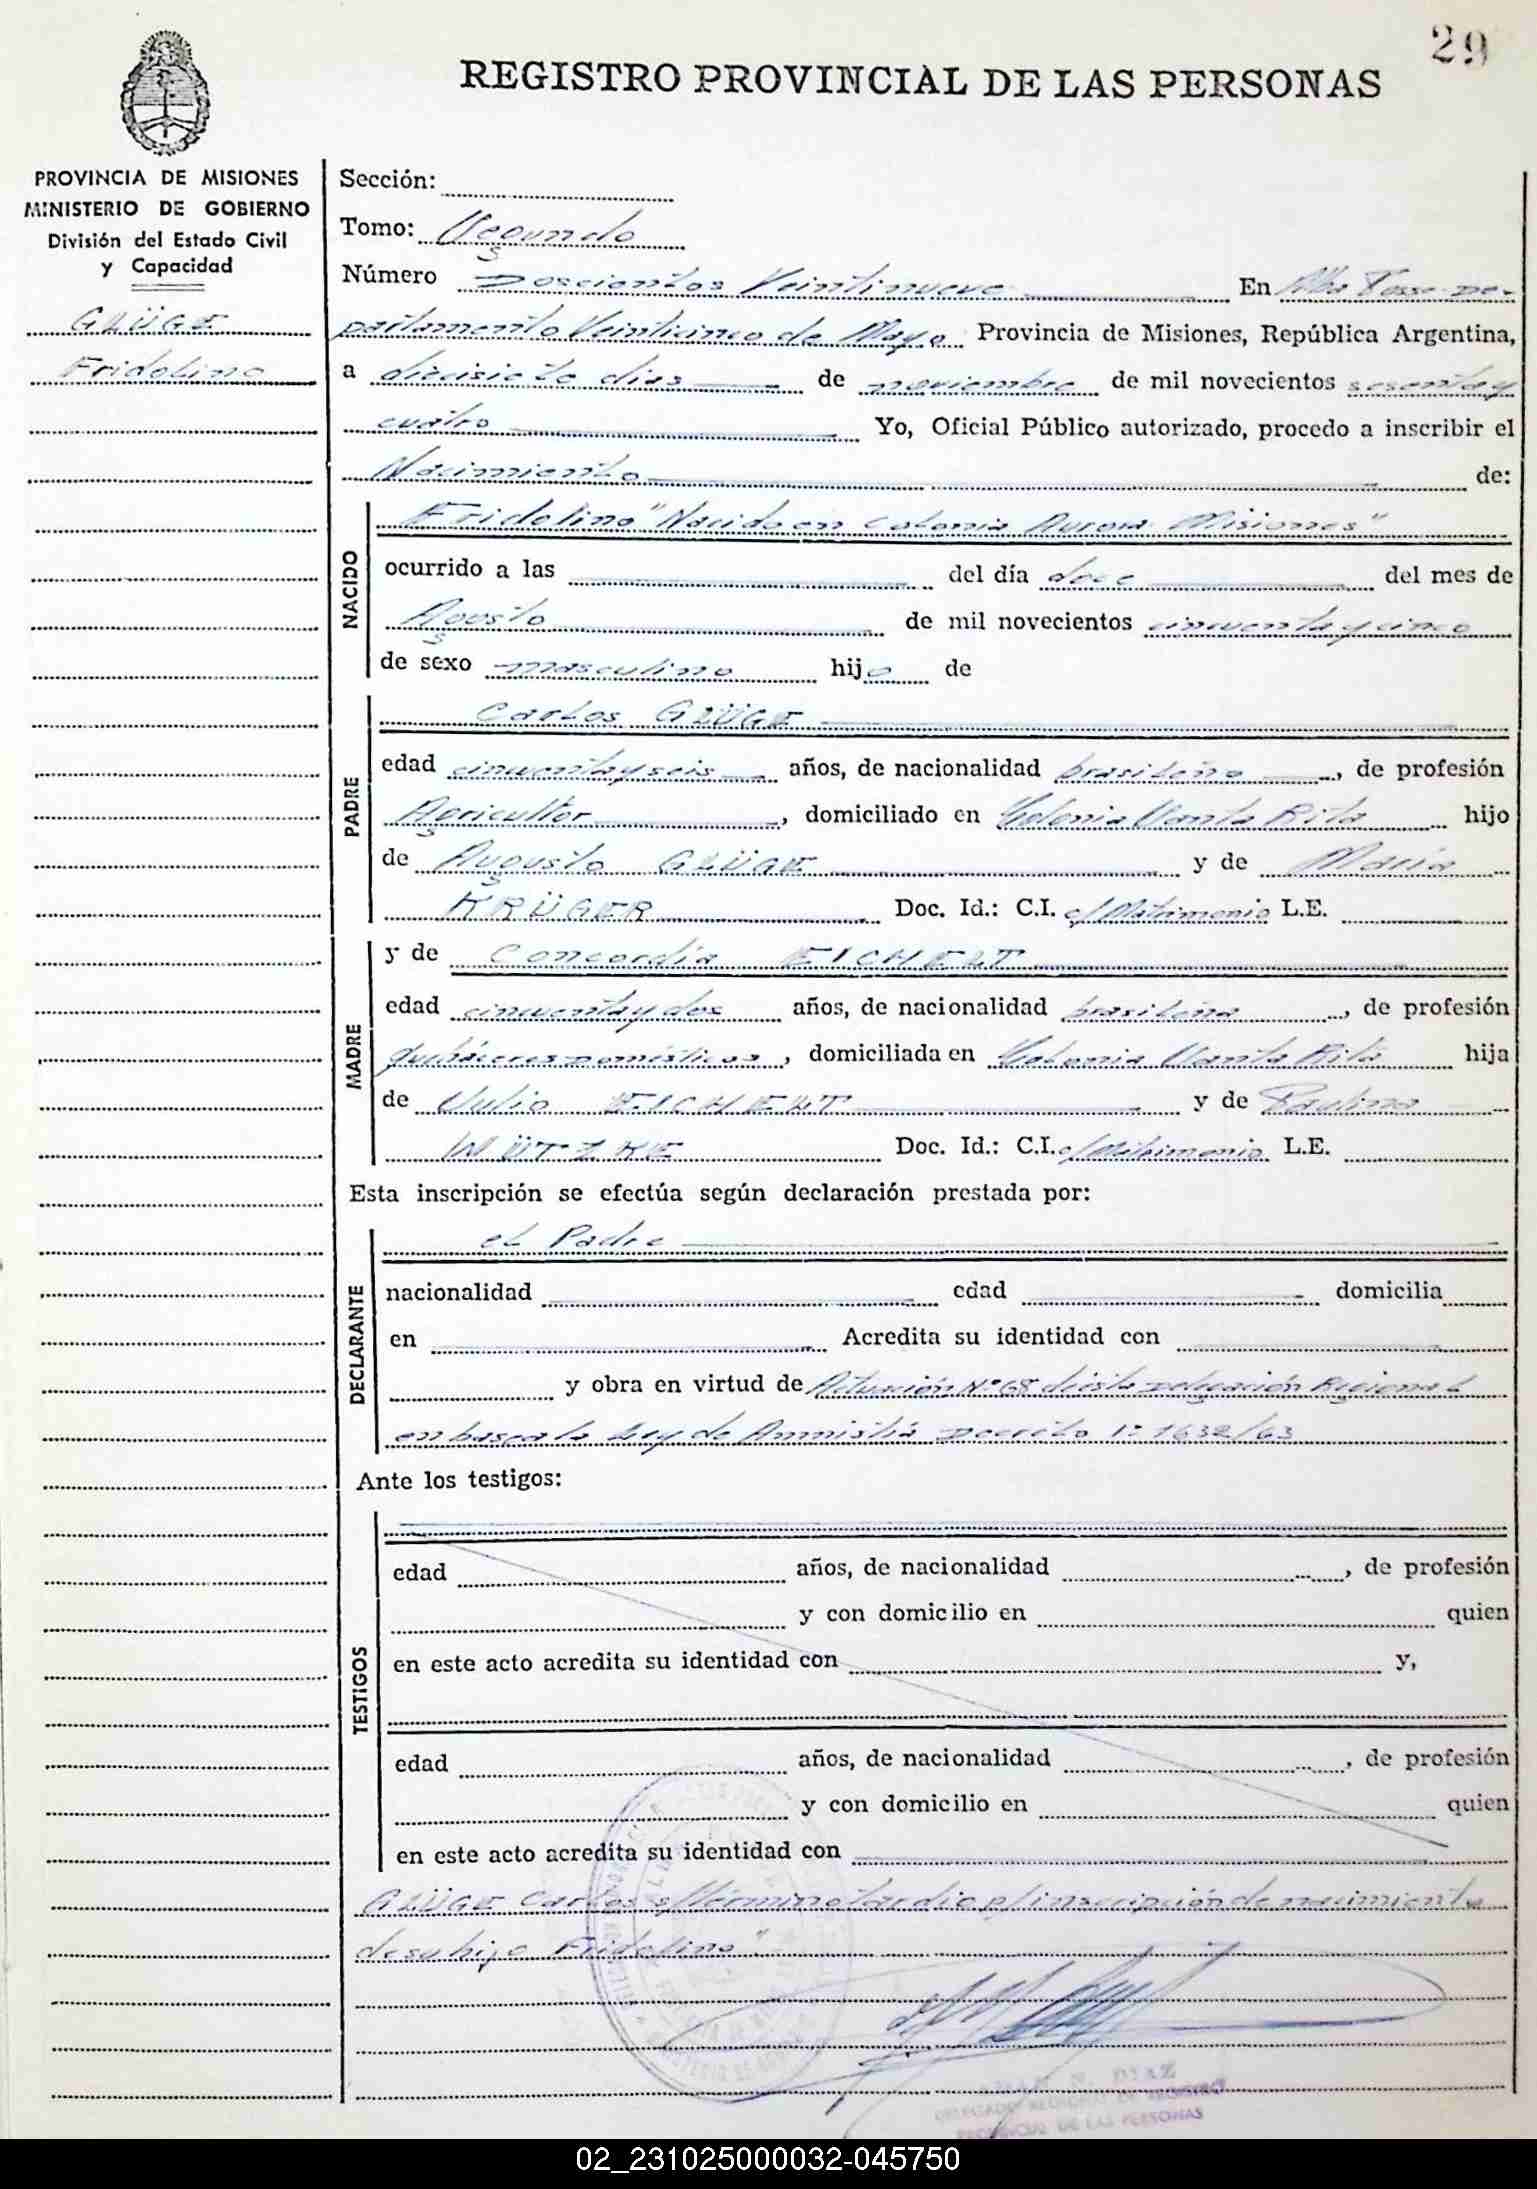 29
REGISTRO PROVINCIAL DE LAS PERSONAS
PROVINCIA DE MISIONES
MINISTERIO DE GOBIERNO
División del Estado Civil
y Capacidad
GLÜGE
Fridolino
Sección:
Tomo: Segundo
Número Doscientos Veintinueve En Alba Posse De-
partamento Veinticinco de Mayo Provincia de Misiones, República Argentina,
a diecisiete dias de noviembre de mil novecientos sesenta y
cuatro Yo, Oficial Público autorizado, procedo a inscribir el
Nacimiento de:
NACIDO
Fridolino "Nacido en Colonia Aurora Misiones"
ocurrido a las del día doce del mes de
Agosto de mil novecientos cincuenta y cinco
de sexo masculino hijo de
PADRE
Carlos GLÜGE
edad cincuenta y seis años, de nacionalidad brasileño, de profesión
Agricultor, domiciliado en Colonia Santa Rita hijo
de Augusto GLÜGE y de María
KRÜGER Doc. Id.: C.I. c/Matrimonio L.E.
MADRE
y de Concordia EICHELT
edad cincuenta y dos años, de nacionalidad brasileña, de profesión
quehaceres domésticos, domiciliada en Colonia Santa Rita hija
de Julio EICHELT y de Paulina
WÜTZKE Doc. Id.: C.I. c/Matrimonio L.E.
Esta inscripción se efectúa según declaración prestada por:
DECLARANTE
el Padre
nacionalidad edad domicilia
en Acredita su identidad con
y obra en virtud de Actuación Nº 68 de esta Delegación Regional
en base a la Ley de Amnistiá Decreto 1: 1632/63
Ante los testigos:
TESTIGOS
edad años, de nacionalidad , de profesión
y con domicilio en quien
en este acto acredita su identidad con y,
edad años, de nacionalidad , de profesión
y con domicilio en quien
en este acto acredita su identidad con
GLÜGE Carlos s/término tardio p/inscripción de nacimiento
de su hijo Fridolino"
N. DIAZ
DELEGADO REGIONAL DE REGISTRO
PROVINCIAL DE LAS PERSONAS
02_231025000032-045750